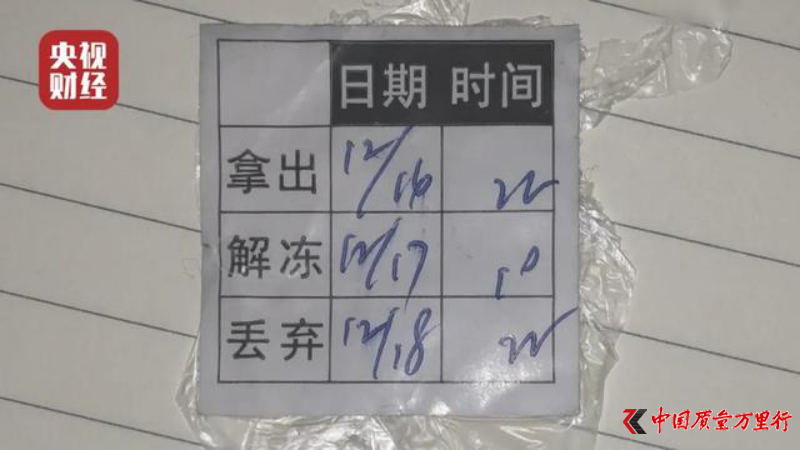 央视
财经
日期 时间
拿出 12/16 22
解冻 12/17 10
丢弃 12/18 22
中国质量万里行